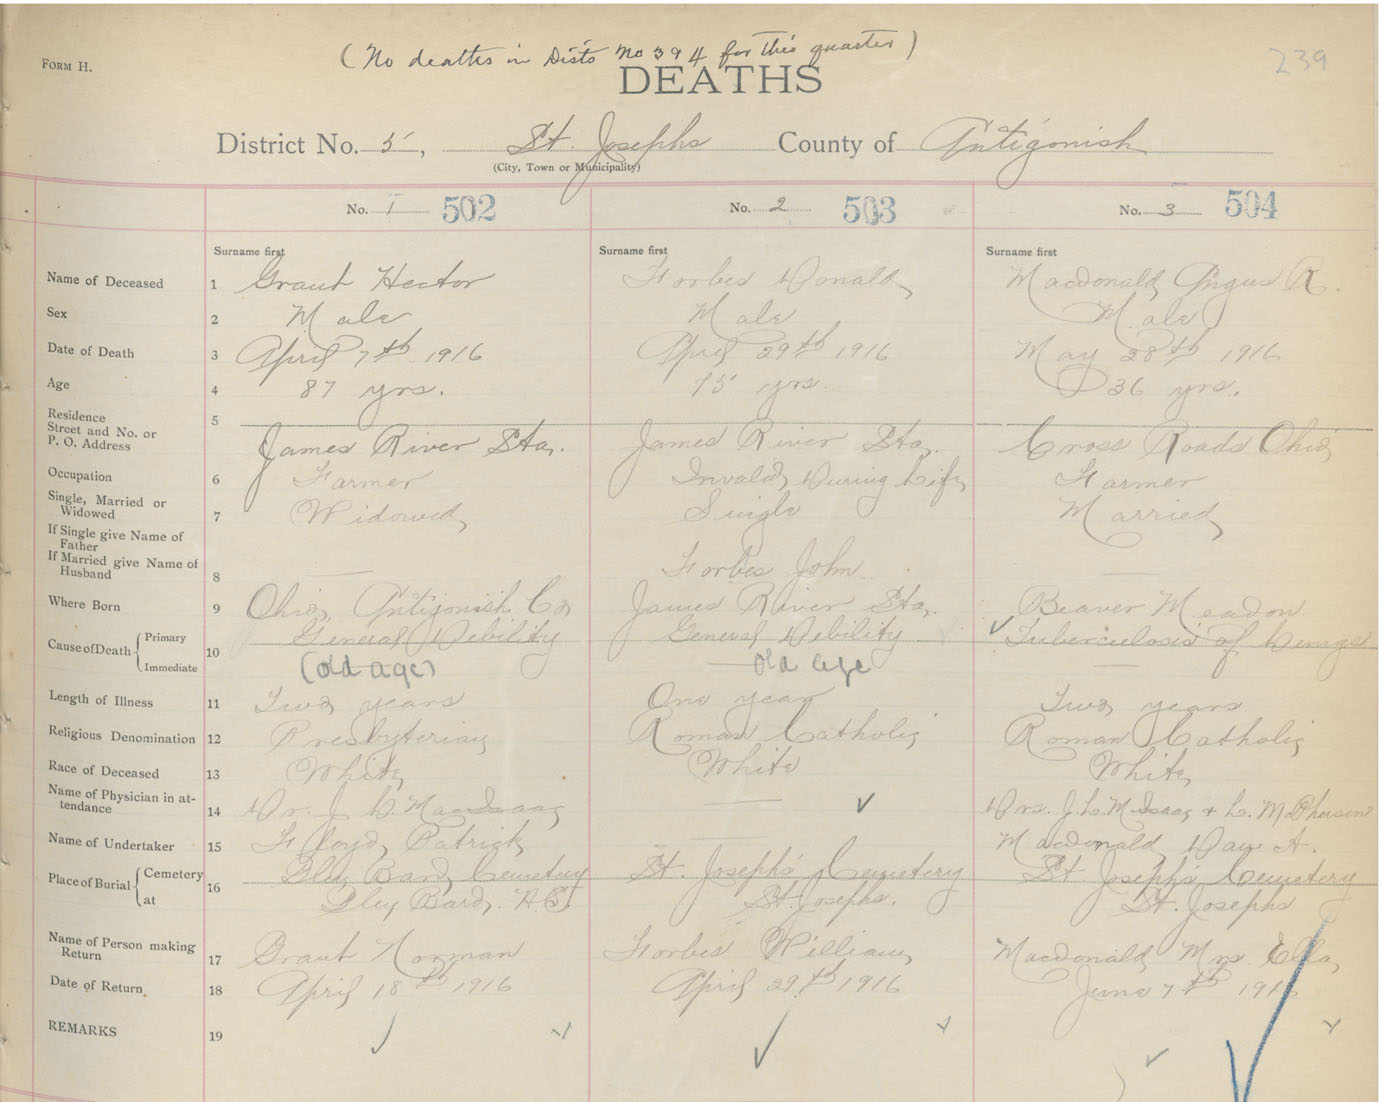 (No deaths in Dists No 3 & 4 for this quarter)
239
FORM H.
DEATHS
District No. 5, St. Josephs County of Antigonish
(City, Town or Municipality)
No. 1 502 No. 2 503 No. 3 504
Surname first Surname first Surname first
Name of Deceased 1 Grant Hector Forbes Donald Macdonald Angus R.
Sex 2 Male Male Male
Date of Death 3 April 7th 1916 April 29th 1916 May 28th 1916
Age 4 87 yrs. 75 yrs. 36 yrs.
Residence 5
Street and No. or
P. O. Address James River Sta. James River Sta. Cross Roads Ohio
Occupation 6 Farmer Invalid During Life Farmer
Single, Married or
Widowed 7 Widowed Single Married
If Single give Name of
Father
If Married give Name of
Husband 8 — Forbes John —
Where Born 9 Ohio, Antigonish Co James River Sta. Beaver Meadow
Cause of Death { Primary General Debility General Debility ✓ Tuberculosis of Lungs
Immediate 10 (old age) — old age —
Length of Illness 11 Two years One year Two years
Religious Denomination 12 Presbyterian Roman Catholic Roman Catholic
Race of Deceased 13 White White White
Name of Physician in at-
tendance 14 Dr. J. L. MacIsaac — ✓ Drs. J. L. McIsaac + L. McPherson
Name of Undertaker 15 Floyd Patrick — Macdonald Dan A.
Place of Burial { Cemetery 16 Glen Bard Cemetery St. Joseph's Cemetery St. Joseph's Cemetery
at Glen Bard, St. Josephs. St. Josephs
Name of Person making
Return 17 Grant Norman Forbes William Macdonald Mrs. Ella
Date of Return 18 April 18th 1916 April 29th 1916 June 7th 1916
REMARKS 19